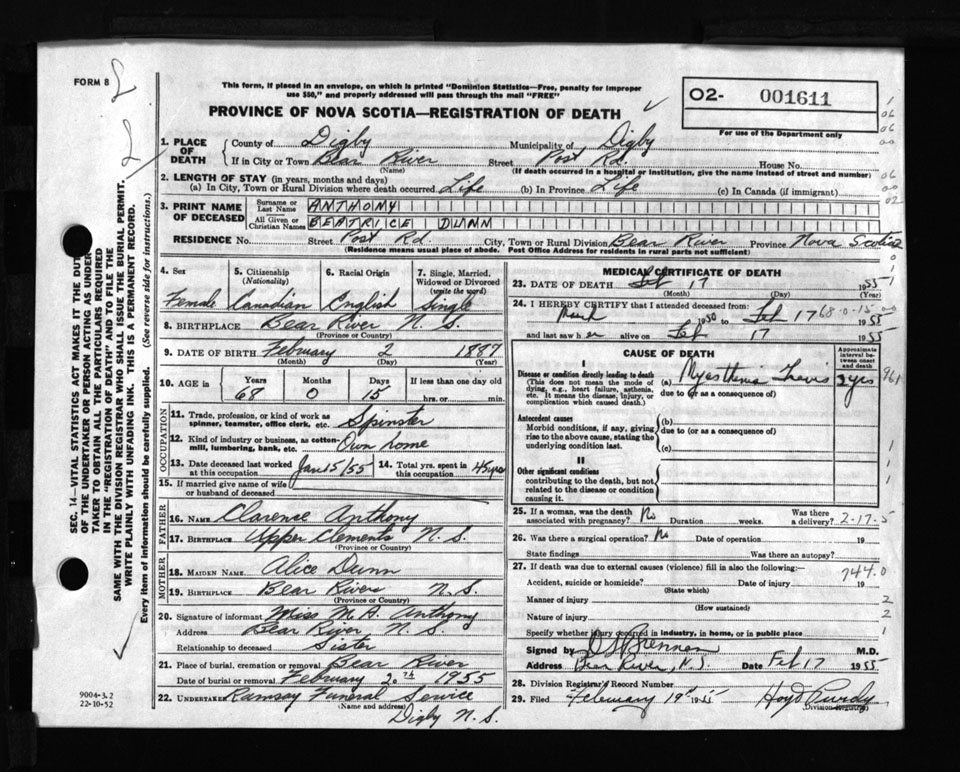 FORM 8
This form, if placed in an envelope, on which is printed "Dominion Statistics—Free, penalty for improper
use $50," and properly addressed will pass through the mail "FREE"
PROVINCE OF NOVA SCOTIA—REGISTRATION OF DEATH
O2- 001611
For use of the Department only
1. PLACE OF DEATH County of Digby Municipality of Digby
If in City or Town Bear River Street Post Rd. House No.
(Name) (If death occurred in a hospital or institution, give the name instead of street and number)
2. LENGTH OF STAY (in years, months and days)
(a) In City, Town or Rural Division where death occurred Life (b) In Province Life (c) In Canada (if immigrant)
3. PRINT NAME OF DECEASED Surname or Last Name ANTHONY
All Given or Christian Names BEATRICE DUNN
RESIDENCE No. Street Post Rd City, Town or Rural Division Bear River Province Nova Scotia
(Residence means usual place of abode. Post Office Address for residents in rural parts not sufficient)
4. Sex 5. Citizenship (Nationality) 6. Racial Origin 7. Single, Married, Widowed or Divorced (write the word)
Female Canadian English Single
8. BIRTHPLACE Bear River N. S.
(Province or Country)
9. DATE OF BIRTH February 2 1887
(Month) (Day) (Year)
10. AGE Years Months Days If less than one day old
68 0 15 hrs. or min.
OCCUPATION
11. Trade, profession, or kind of work as
spinner, teamster, office clerk, etc. Spinster
12. Kind of industry or business, as cotton-
mill, lumbering, bank, etc. Own home
13. Date deceased last worked at this occupation Jan 15/55 14. Total yrs. spent in this occupation 45 yrs
15. If married give name of wife
or husband of deceased
FATHER
16. NAME Clarence Anthony
17. BIRTHPLACE Upper Clements N. S.
(Province or Country)
MOTHER
18. MAIDEN NAME Alice Dunn
19. BIRTHPLACE Bear River N. S.
(Province or Country)
20. Signature of informant Miss M. A. Anthony
Address Bear River N. S.
Relationship to deceased Sister
21. Place of burial, cremation or removal Bear River
Date of burial or removal February 20th 1955
22. UNDERTAKER Ramsay Funeral Service
(Name and address)
Digby N. S.
MEDICAL CERTIFICATE OF DEATH
23. DATE OF DEATH Feb 17 1955
(Month) (Day) (Year)
24. I HEREBY CERTIFY that I attended deceased from:
1950 to Feb 17 1955
68-0-15
and last saw her alive on Feb 17 1955
CAUSE OF DEATH
Approximate interval between onset and death
I
Disease or condition directly leading to death
(This does not mean the mode of dying, e.g., heart failure, asthenia, etc. It means the disease, injury, or complication which caused death.)
(a) Myasthenia Gravis 2 yrs
due to (or as a consequence of)
Antecedent causes
Morbid conditions, if any, giving rise to the above cause, stating the underlying condition last.
(b)
due to (or as a consequence of)
(c)
II
Other significant conditions
contributing to the death, but not related to the disease or condition causing it.
25. If a woman, was the death associated with pregnancy? No Duration weeks. Was there a delivery? 2-17-5
26. Was there a surgical operation? No Date of operation 19
State findings Was there an autopsy?
27. If death was due to external causes (violence) fill in also the following:—
744.0
Accident, suicide or homicide? Date of injury 19
(State which)
Manner of injury 2
(How sustained)
Nature of injury 2
Specify whether injury occurred in industry, in home, or in public place 1
Signed by Brennen M.D.
Address Bear River, N.S. Date Feb 17 1955
28. Division Registrar's Record Number
29. Filed February 19th 1955 Purdy
(Division Registrar)
SEC. 14—VITAL STATISTICS ACT MAKES IT THE DUTY
OF THE UNDERTAKER OR PERSON ACTING AS UNDER-
TAKER TO OBTAIN ALL THE PARTICULARS REQUIRED
IN THE "REGISTRATION OF DEATH" AND TO FILE THE
SAME WITH THE DIVISION REGISTRAR WHO SHALL ISSUE THE BURIAL PERMIT.
WRITE PLAINLY WITH UNFADING INK. THIS IS A PERMANENT RECORD.
Every item of information should be carefully supplied. (See reverse side for instructions.)
9004-3.2
22-10-52